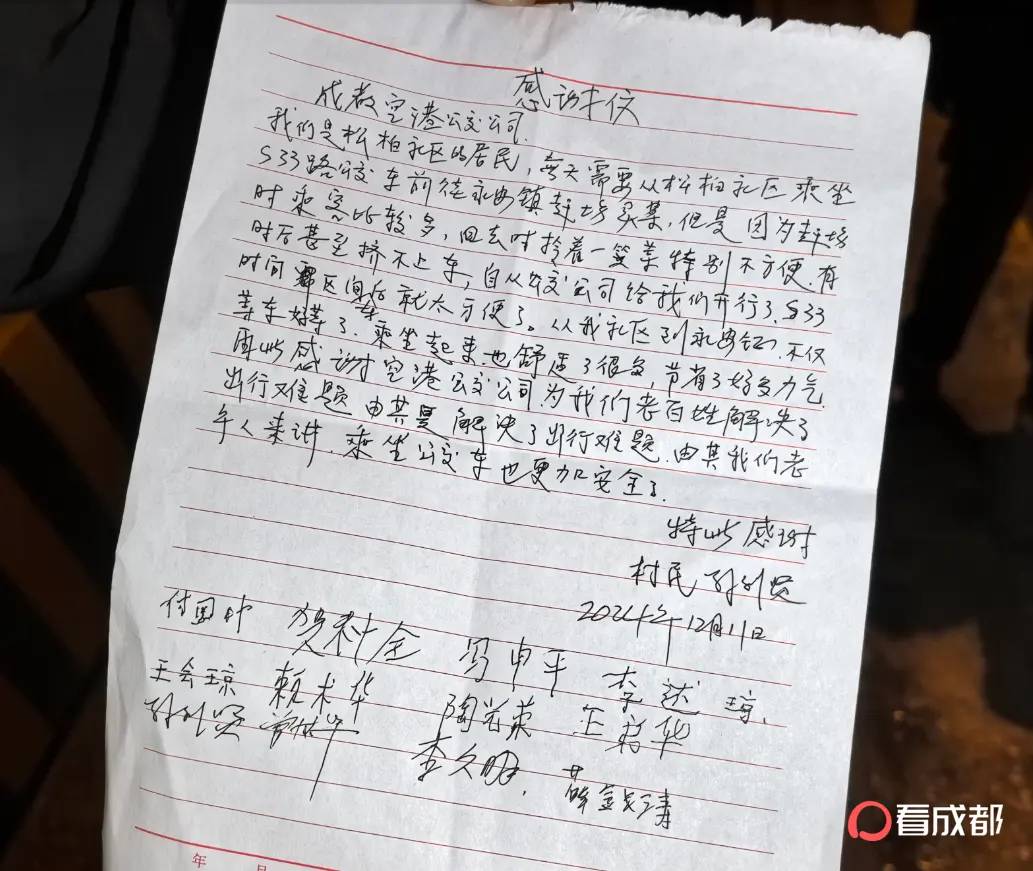 感谢信
成都空港公交公司.
我们是松柏社区的居民,每天需要从松柏社区乘坐
S33路公交车前往永安镇赶场买菜,但是因为赶场
时乘客比较多,回去时拎着一篮菜特别不方便.有
时后甚至挤不上车,自从公交公司给我们开行了S33
时间区间后就太方便了。从我社区到永安镇.不仅
等车好等了.乘坐起来也舒适了很多,节省了好多力气.
再此感谢空港公交公司为我们老百姓解决了
出行难题由其是解决了出行难题.由其我们老
年人来讲.乘坐公交车也更加安全了.
特此感谢
村民
2024年12月11日
贺科全 冯申平 李述琼.
王会琼 赖术华 陶光荣 华
李久明. 薛
看成都
年 月